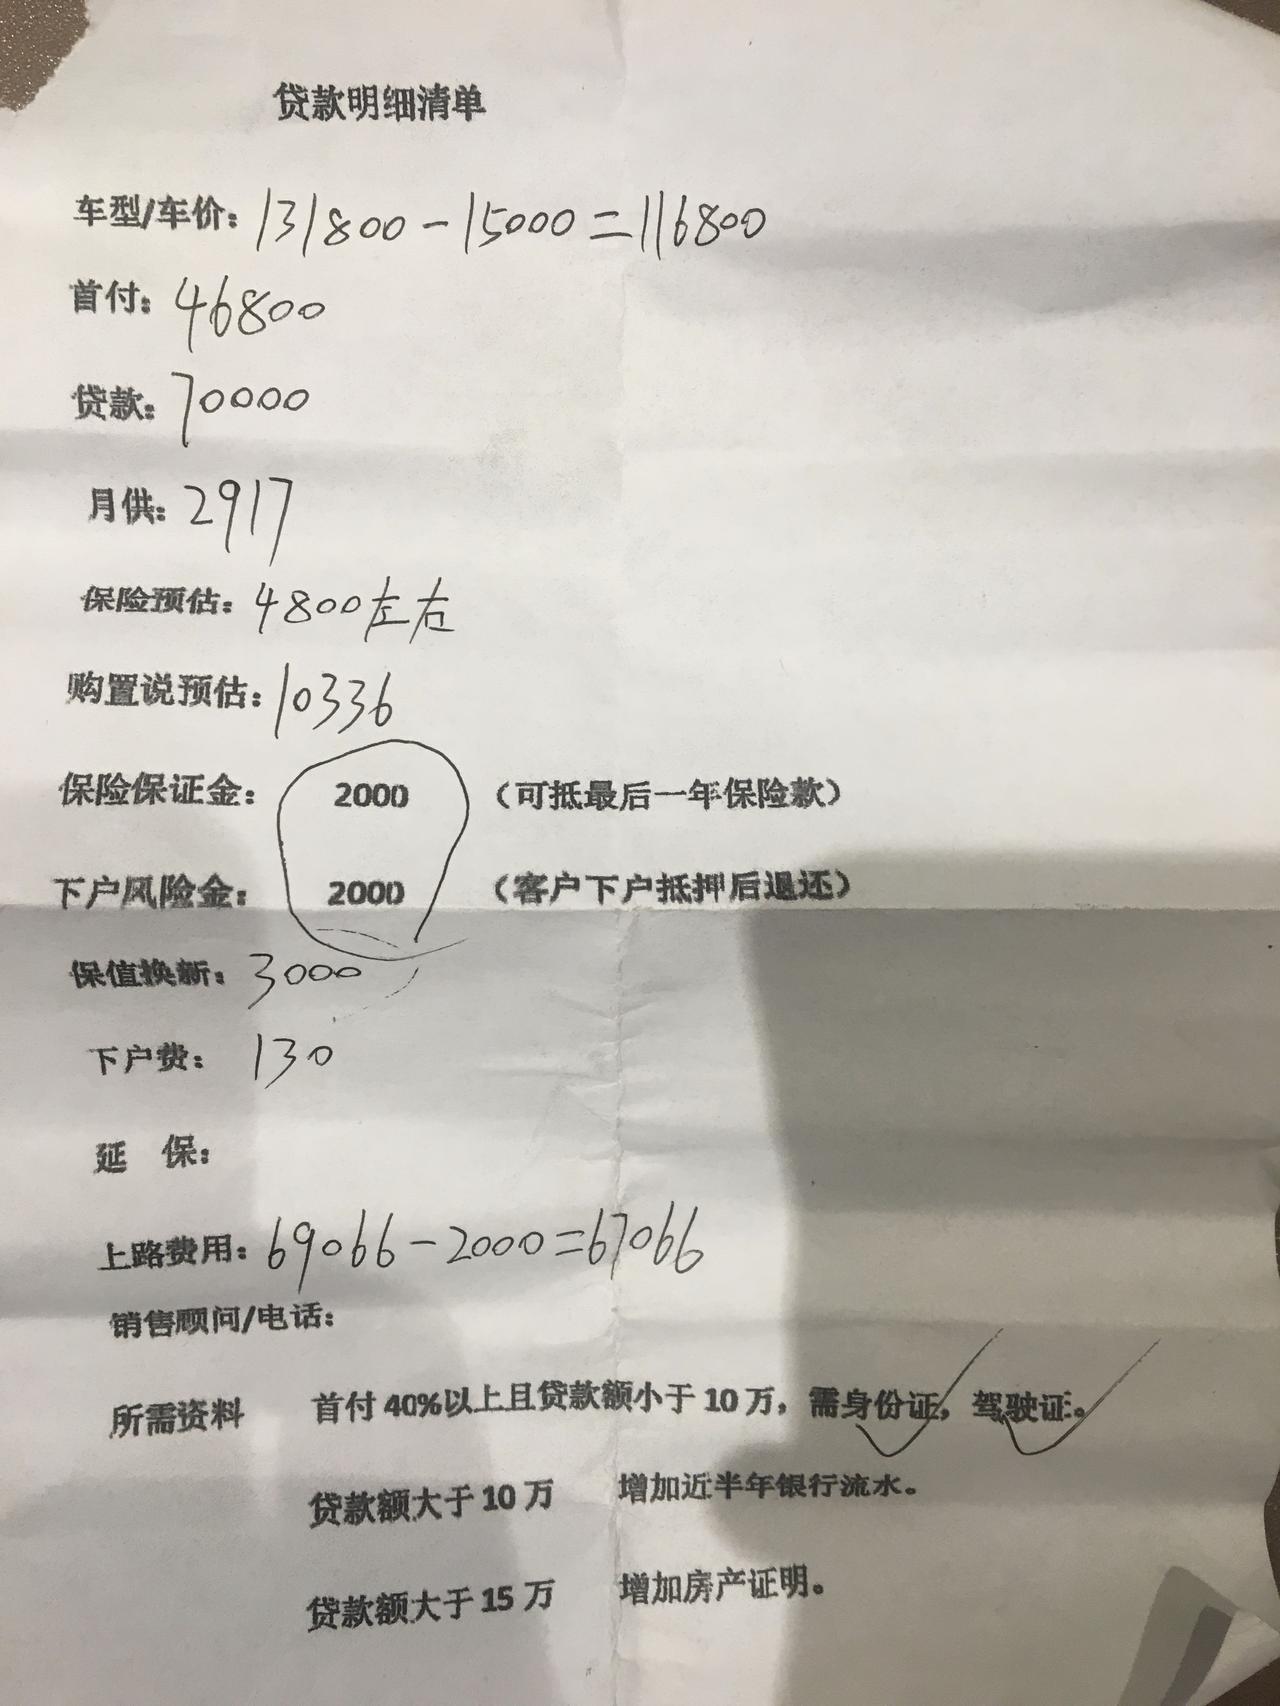 贷款明细清单
车型/车价：131800-15000=116800
首付：46800
贷款：70000
月供：2917
保险预估：4800左右
购置说预估：10336
保险保证金： 2000 （可抵最后一年保险款）
下户风险金： 2000 （客户下户抵押后退还）
保值换新：3000
下户费： 130
延 保：
上路费用：69066-2000=67066
销售顾问/电话：
所需资料 首付 40%以上且贷款额小于 10 万，需身份证，驾驶证。
贷款额大于 10 万 增加近半年银行流水。
贷款额大于 15 万 增加房产证明。